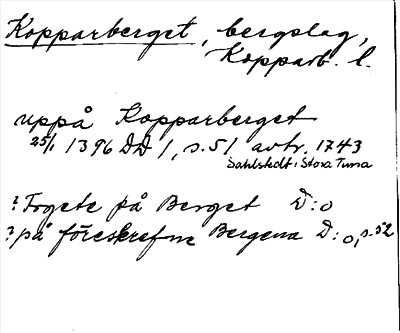 Kopparberget, bergslag,
Kopparb. l.
uppå Kopparberget
25/1 1396 DD 1, s. 51 avtr. 1743
Sahlstedt: Stora Tuna
? Fogete på Berget D:o
? på föreskrefne Bergena D:o, s. 52